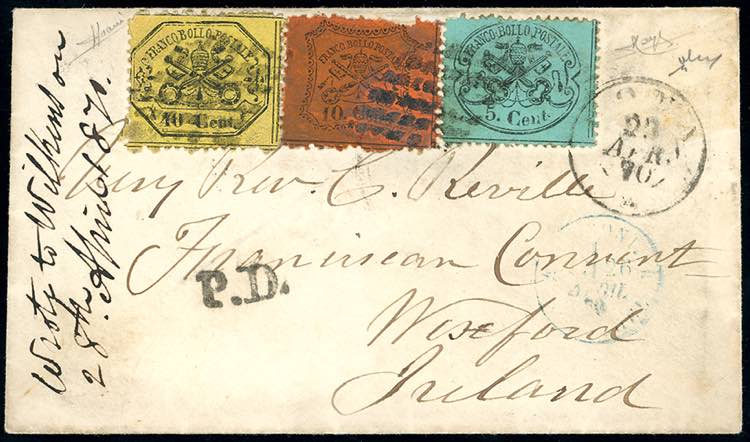 FRANCO BOLLO POSTALE
40 Cent
FRANCO BOLLO POSTALE
10 Cent
FRANCO BOLLO POSTALE
5. Cent.
23
APR
70
Very Rev. C. Reville
Franciscan Convent
Wexford
Ireland
P.D.
Wrote to Wilkinson
28th April 1870.